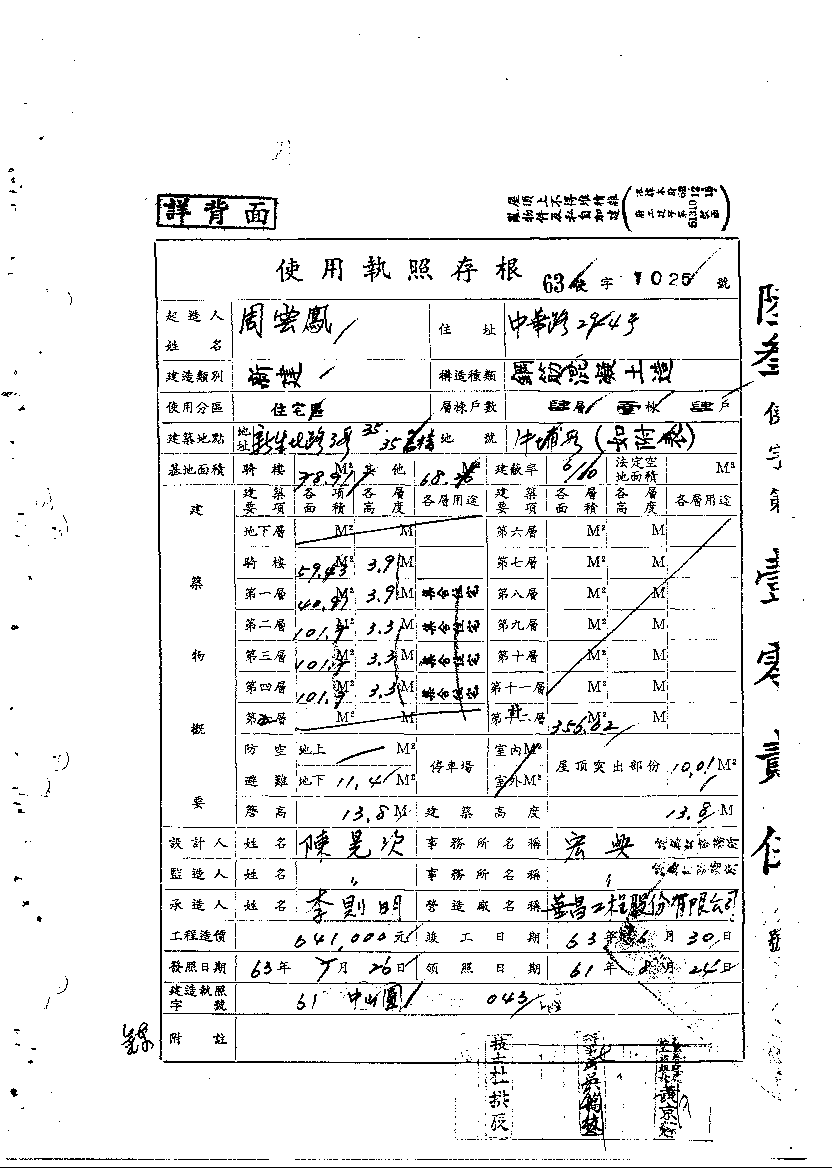 詳背面
屋頂上不得堆積雜
物件及私自加建
使用執照存根 63使字1025號
起造人姓名 周雲鳳 住址 中華路294号
建造類別 新建 構造種類 鋼筋混凝土造
使用分區 住宅區 層棟戶數 層 棟 戶
建築地點 地址 新生北路3段35. 地號 牛埔段(如附表)
基地面積 騎樓 M² 其他 68. M² 建蔽率 6/10 法定空地面積 M²
建築物概要
建築要項 各項面積 各層高度 各層用途 建築要項 各層面積 各層高度 各層用途
地下層 M² M 第六層 M² M
騎樓 59.43 M² 3.9 M 第七層 M² M
第一層 40.97 M² 3.9 M 集合住宅 第八層 M² M
第二層 101.9 M² 3.3 M 集合住宅 第九層 M² M
第三層 101.9 M² 3.3 M 集合住宅 第十層 M² M
第四層 101.9 M² 3.3 M 集合住宅 第十一層 M² M
第五層 M² M 第十二層 計 356.62 M² M
防空避難 地上 M² 地下 11.4 M² 停車場 室內M² 室外M² 屋頂突出部份 10.01 M²
簷高 13.8 M 建築高度 13.8 M
設計人 姓名 陳晃次 事務所名稱 宏興
監造人 姓名 〃 事務所名稱 〃
承造人 姓名 李則明 營造廠名稱 華昌工程股份有限公司
工程造價 641,000元 竣工日期 63年6月30日
發照日期 63年 月26日 領照日期 61年8月24日
建造執照字號 61 中山園 043
附註
技士杜拱辰
陸叁使字第壹零貳伍號